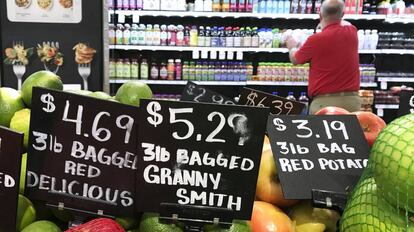 $4.69
3lb BAGGED
RED
DELICIOUS
$5.29
3lb BAGGED
GRANNY
SMITH
$6.39
$3.19
3lb BAG
RED POTATO